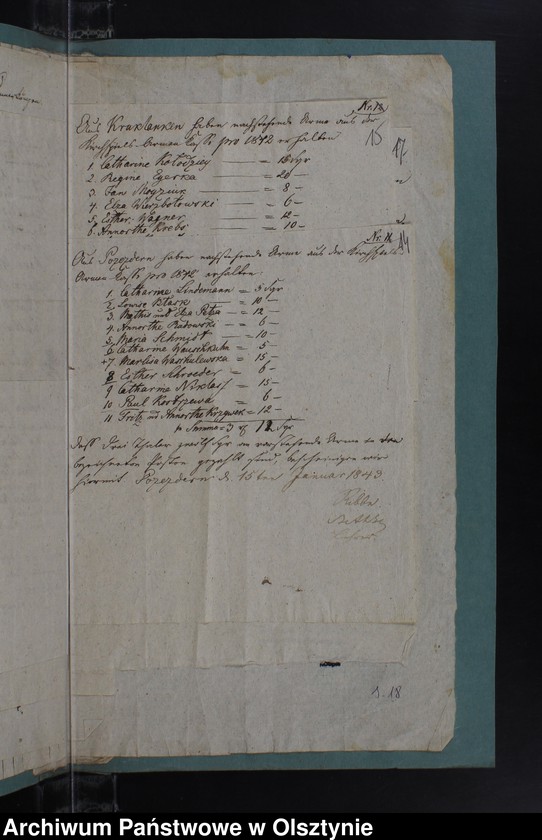 Nr. 13
Aus Kruklanken haben nachstehende Arme aus der
Kirchspiels Armen Casse pro 1842 erhalten
15
17
1. Catharine Kołodziey — = 18 Sgr
2. Regine Czerka — = 20 —
3. Jan — = 8 —
4. Elza Wierzbołowski — = 6 —
5. Esther Wagner — = 12 —
6. Annorthe Krebs — = 10 —
Nr. 14
14
Aus Pozezdern haben nachstehende Arme aus der Kirchspiels
Armen Casse pro 1842 erhalten:
1. Catharine Lindemann = 5 Sgr
2. Louise Black — = 10 —
3. Mathis und Elza Petza — = 12 —
4. Annorthe Radowski — = 6 —
5. Maria Schmidt — = 10 —
6. Catharine — = 5 —
7. Marlisa Waschulewska = 15 —
8. Esther Schroeder — = 6 —
9. Catharina Niklas — = 15 —
10. Paul Korbzewa — = 6 —
11. Fritz und Annorthe Krzywek = 12 —
Summa = 3 12 Sgr
Dass drei Thaler zwölf Sgr an vorstehende Arme in den
bezeichneten Posten gezahlt sind, bescheinigen wir
hiermit Pozezdern d. 15ten Januar 1843.
S. 18
Archiwum Państwowe w Olsztynie